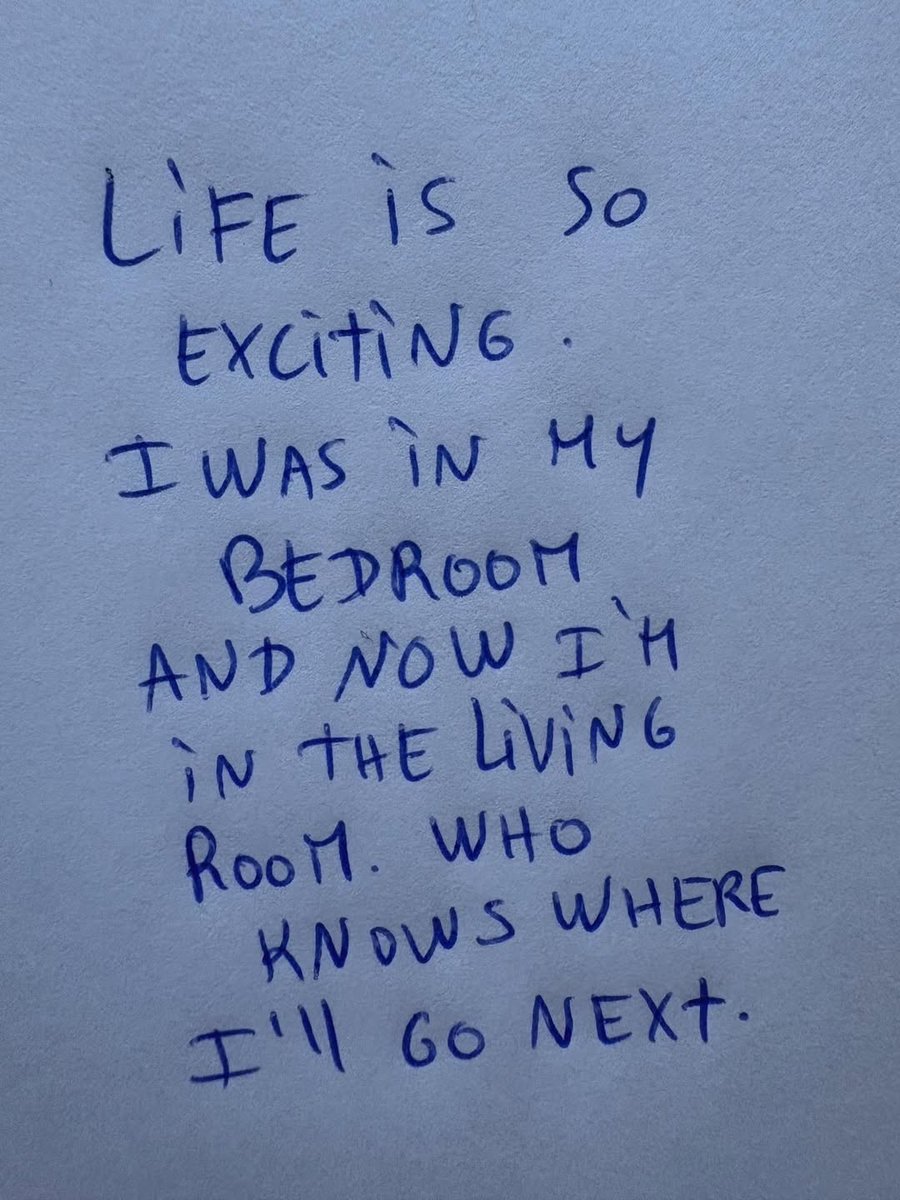 LiFE iS SO
EXCiTiNG.
I WAS iN MY
BEDROOM
AND NOW I'M
iN THE LiViNG
ROOM. WHO
KNOWS WHERE
I'll GO NEXT.